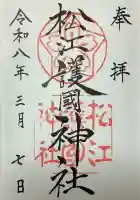 奉拝
松江護國神社
松江
神社
令和八年三月七日